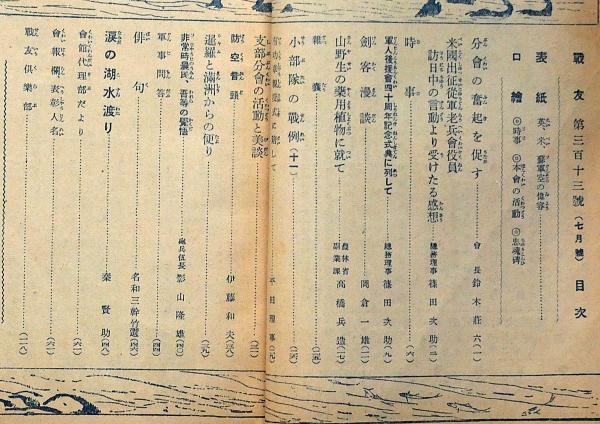 戰友 第三百十三號 (七月號) 目次
表紙 英、米、蘇軍空の偉容
口繪 ◎時事 ◎本會の活動 ◎忠魂碑
分會の奮起を促す 會長 鈴木莊六 (一)
米國出征從軍老兵會役員
訪日中の言動より受けたる感想 總務理事 篠田次助 (三)
時事 (六)
軍人後援會四十周年記念式典に列して 總務理事 篠田次助
劍客漫談 岡倉一雄
山野生の藥用植物に就て 農林省 副業課 高橋兵造 (一七)
雜嚢
小部隊の戰例(十一)
して 平田理事
支部分會の活動と美談
防空言頭 伊藤和夫
暹羅と滿洲からの便り
非常時農民、吾等の覺悟 砲兵伍長 影山隆雄
軍事問答
俳句 名和三幹竹選
淚の湖水渡り 秦賢助
會館代理部だより
會報欄表彰人名
戰友俱樂部